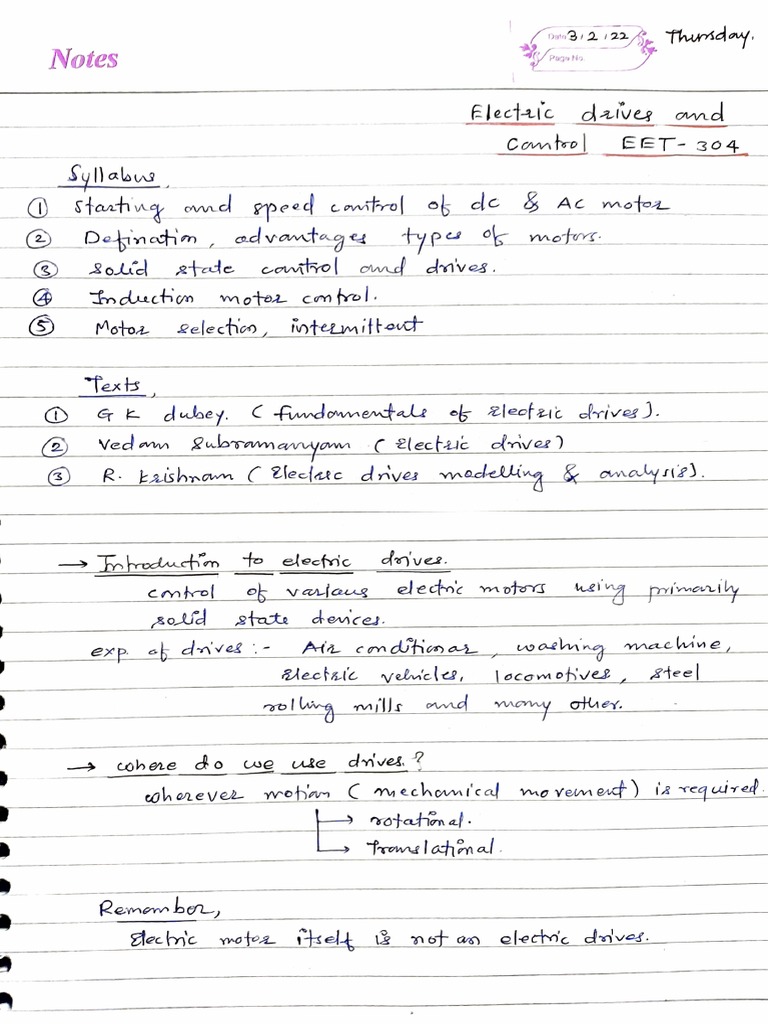 Notes
Date 3.2.22 Thursday.
Page No.
Electric drives and
Control EET-304
Syllabus,
① Starting and speed control of dc & AC motor
② Defination, advantages types of motors.
③ Solid state control and drives.
④ Induction motor control.
⑤ Motor selection, intermittent
Texts,
① G K dubey. (fundamentals of Electric drives).
② Vedam Subramanyam (Electric drives)
③ R. Krishnam (Electric drives modelling & analysis).
→ Introduction to electric drives.
control of various electric motors using primarily
solid state devices.
exp. of drives :- Air conditionar, washing machine,
Electric vehicles, locomotives, steel
rolling mills and many other.
→ where do we use drives.?
wherever motion (mechanical movement) is required.
→ rotational.
→ Translational.
Remember,
Electric motor itself is not an electric drives.